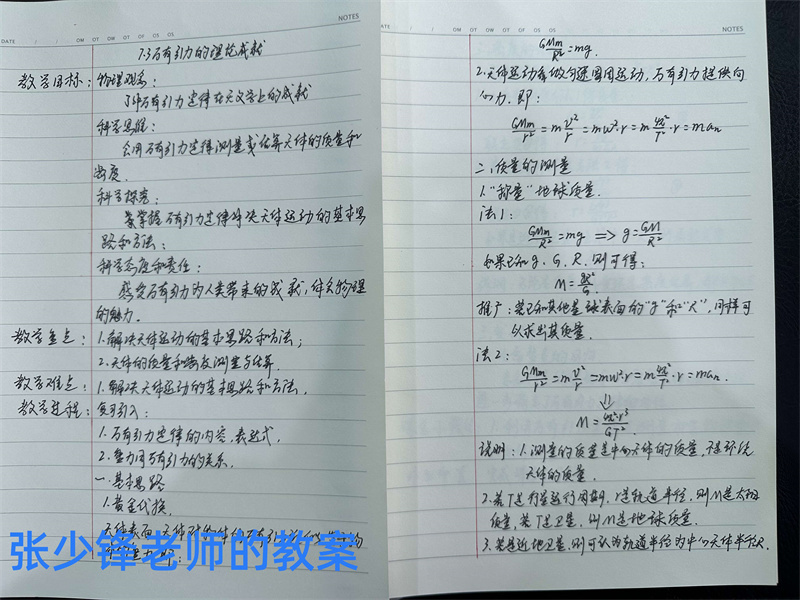 NOTES
DATE / / OM OT OW OT OF OS OS
7.3 万有引力的理论成就
教学目标：物理观念：
了解万有引力定律在天文学上的成就
科学思维：
会用万有引力定律测量或估算天体的质量和
密度.
科学探究：
掌握万有引力定律解决天体运动的基本思
路和方法；
科学态度和责任：
感受万有引力为人类带来的成就，体会物理
的魅力.
教学重点：1.解决天体运动的基本思路和方法；
2.天体的质量和密度测量与估算.
教学难点：1.解决天体运动的基本思路和方法.
教学过程：复习引入：
1.万有引力定律的内容、表达式.
2.重力同万有引力的关系.
一.基本思路
1.黄金代换.
张少锋老师的教案
ATE / / OM OT OW OT OF OS OS
NOTES
GMm/R²=mg.
2.天体运动看做匀速圆周运动，万有引力提供向
心力.即：
GMm/r²=m v²/r=mω²·r=m 4π²/T²·r=man
二.质量的测量
1.“称量”地球质量.
法1：
GMm/R²=mg ⇒ g=GM/R²
如果已知g、G、R.则可得：
M=gR²/G.
推广：若已知其他星球表面的“g”和“R”，同样可
以求出其质量.
法2：
GMm/r²=m v²/r=mω²·r=m 4π²/T²·r=man.
⇓
M=4π²·r³/GT².
说明：1.测量的质量是中心天体的质量，不是环绕
天体的质量.
2.若T是行星运行周期，r是轨道半径，则M是太阳
质量，若T是卫星，则M是地球质量.
3.若是近地卫星，则可认为轨道半径为中心天体半径R.